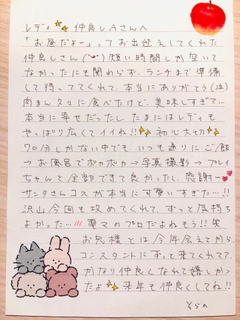 レディ✨仲良しAさんへ
「お昼だよー」ってお出迎えしてくれた
仲良しさん(^-^)短い時間しか空いて
なかったにも関わらず、ランチまで準備
して待っててくれて、本当にありがとう(泣)
肉まん2コに食べたけど、美味しすぎて…
本当に幸せだったし たまにはレディも
やっぱり広くてイイネ!!✨初ルも大切✨
70分しかない中でも、いつも通りにご飯
→お風呂でホカホカ→写真撮影→プレイ
ちゃんと全部できて良かったし、感謝ー❤
サンタさんコスが本当に可愛いすぎた…!!
沢山今回も攻めてくれて、ずっと気持ち
よかった…!!! 専マのプロだよねそう!!笑
お兄様とは今年会えてから
コンスタントにずっと来てくれて?
かなり仲良くなれて嬉しかっ
たよ✨来年も仲良くしてね!!